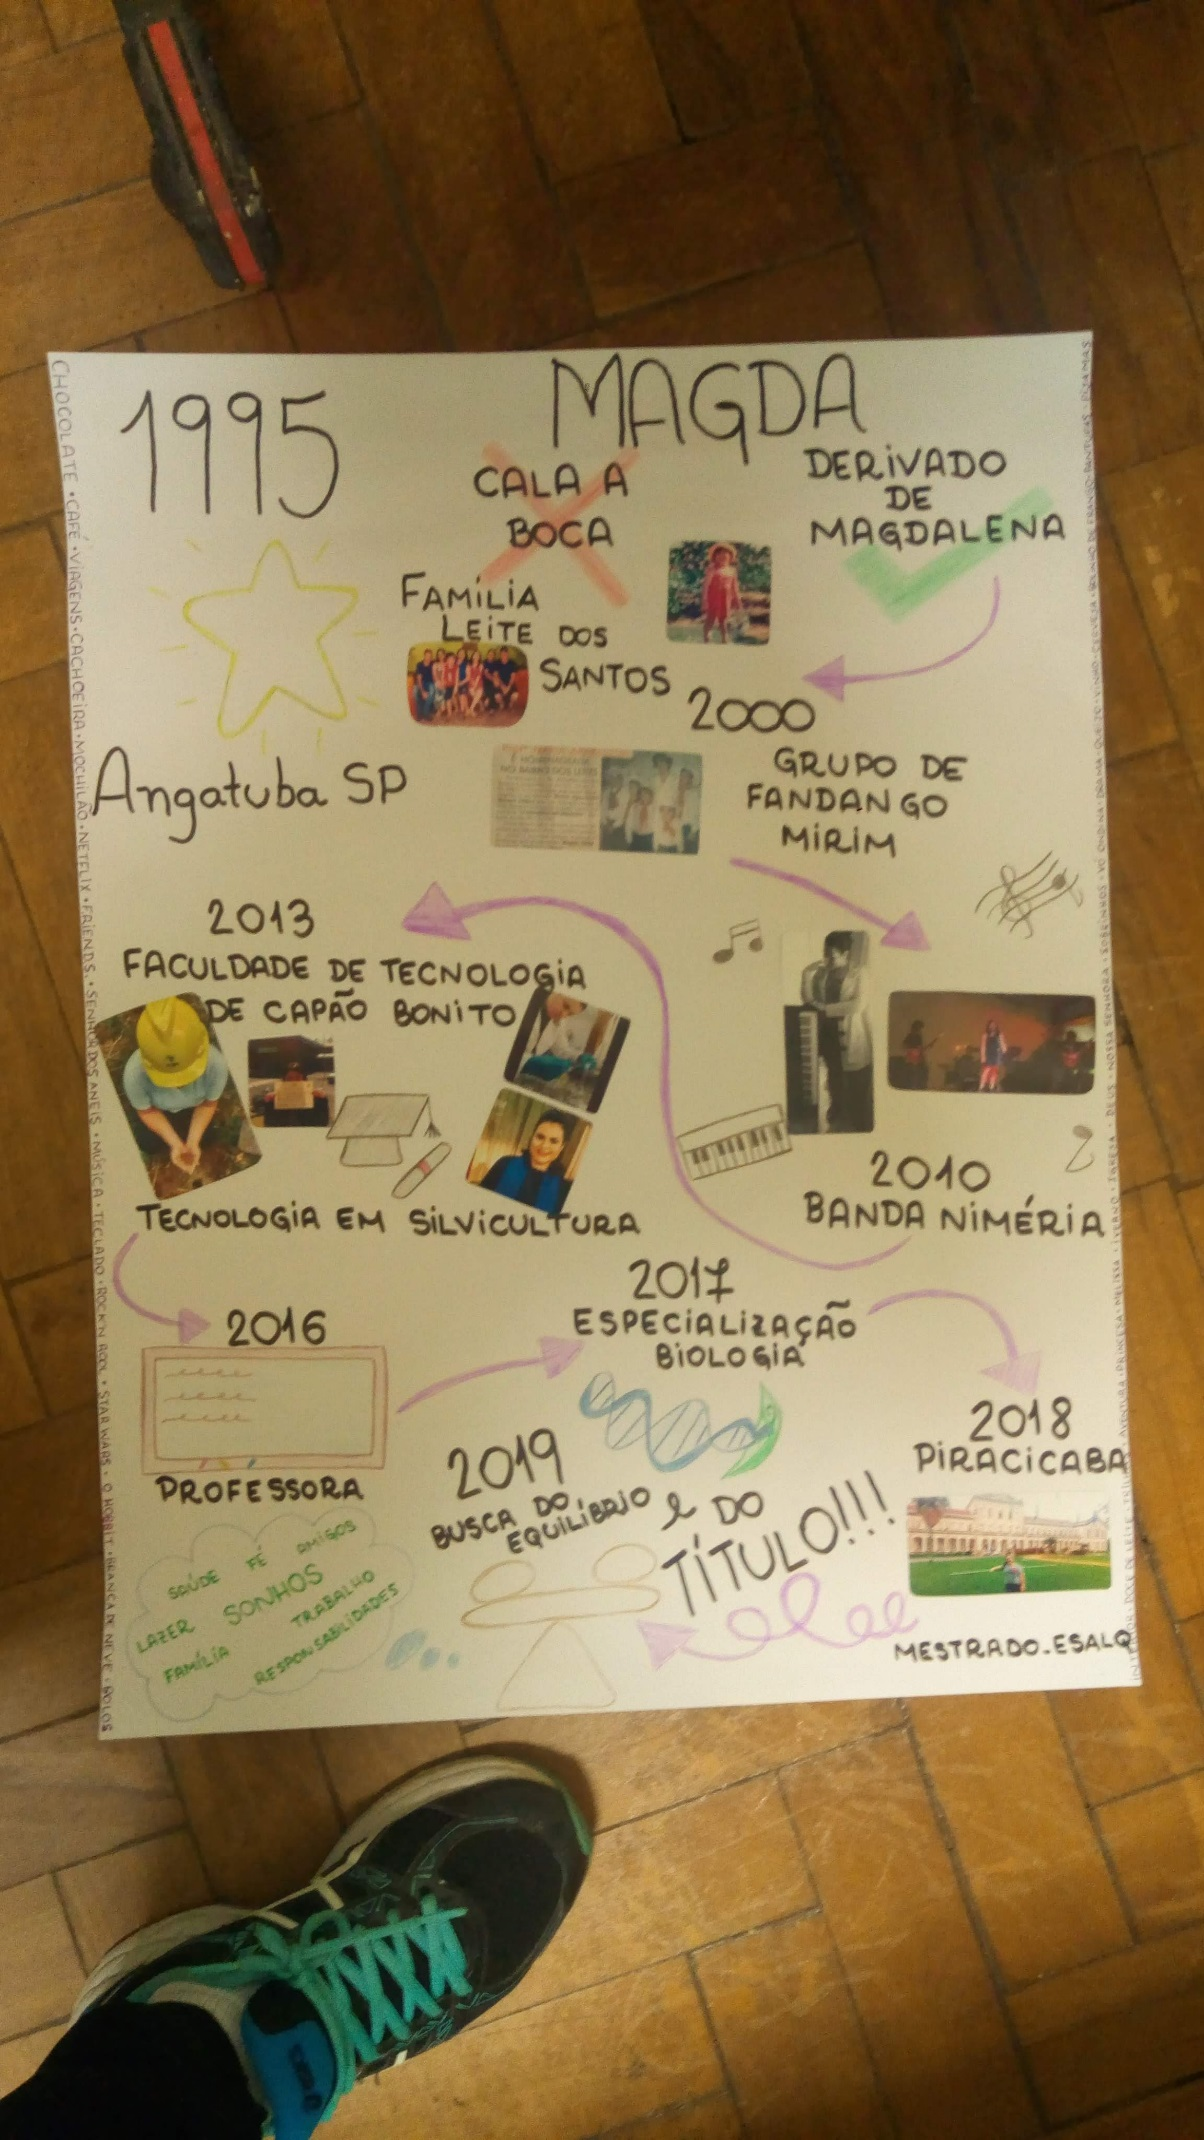 1995
MAGDA
CALA A
BOCA
DERIVADO
DE
MAGDALENA
FAMÍLIA
LEITE DOS
SANTOS
Angatuba SP
2000
GRUPO DE
FANDANGO
MIRIM
2010
BANDA NIMÉRIA
2013
FACULDADE DE TECNOLOGIA
DE CAPÃO BONITO
TECNOLOGIA EM SILVICULTURA
2016
PROFESSORA
2017
ESPECIALIZAÇÃO
BIOLOGIA
2018
PIRACICABA
MESTRADO-ESALQ
2019
BUSCA DO
EQUILÍBRIO
e DO
TÍTULO!!!
SAÚDE FÉ AMIGOS
LAZER SONHOS TRABALHO
FAMÍLIA RESPONSABILIDADES
CHOCOLATE • CAFÉ • VIAGENS • CACHOEIRA • MOCHILÃO • NETFLIX • FRIENDS • SENHOR DOS ANEIS • MÚSICA • TECLADO • ROCK'N ROOL • STAR WARS • O HOBBIT • BRANCA DE NEVE • BOLOS